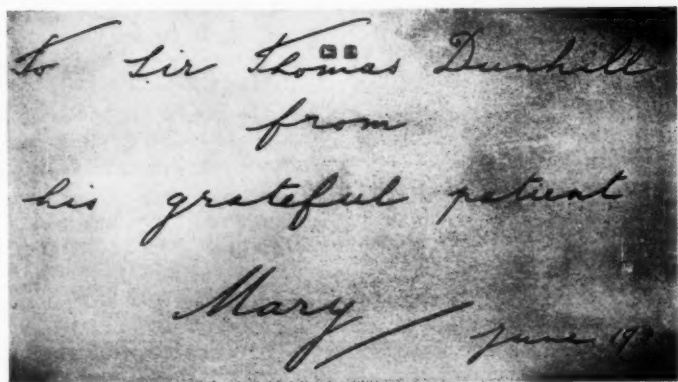 To Sir Thomas Dunhill
from
his grateful patient
Mary
June